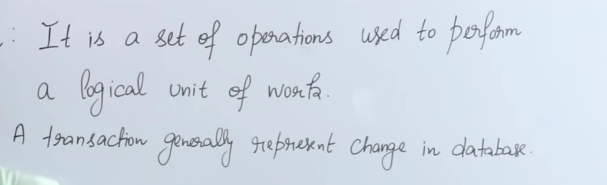 : It is a set of operations used to perform
a logical unit of work.
A transaction generally represent change in database.